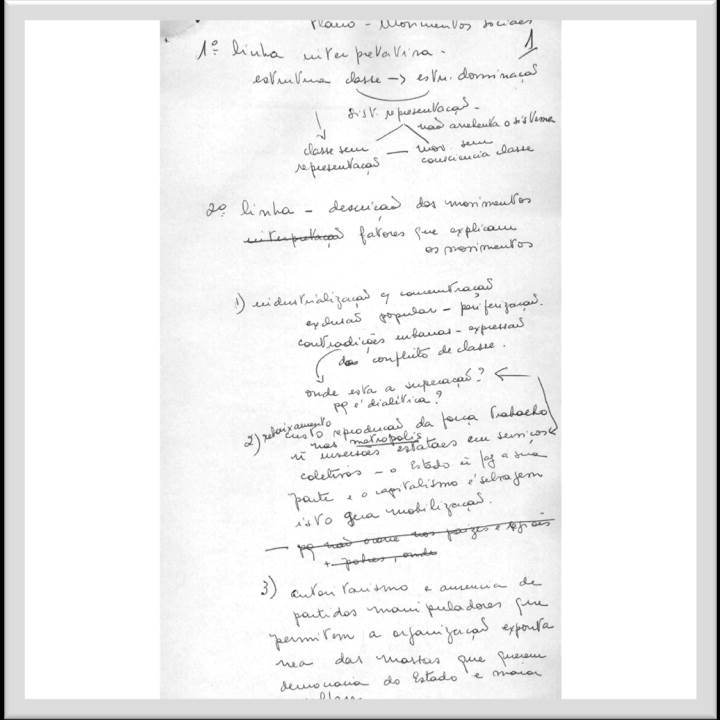 Plano - Movimentos sociais
1
1º linha interpretativa.
estrutura classe -> estr. dominação
sist. representação -
não arrebenta o sistema
classe sem — mov. sem
representação consciencia classe
2º linha - descrição dos movimentos
interpretação fatores que explicam
os movimentos
1) industrialização c/ concentração
exclusão popular - periferização.
contradições urbanas - expressão
do conflito de classe.
onde esta a superação?
pq é dialética?
rebaixamento
2) custo reprodução da força trabalho
nas metropolis
ñ inversões estatais em serviços
coletivos - o Estado ñ faz a sua
parte e o capitalismo é selvagem
isto gera mobilização.
— pq não ocorre nos paizes e regiões
+ pobres, onde
3) autoritarismo e ausencia de
partidos manipuladores que
permitem a organização exponta
nea das massas que querem
democracia do Estado e maior